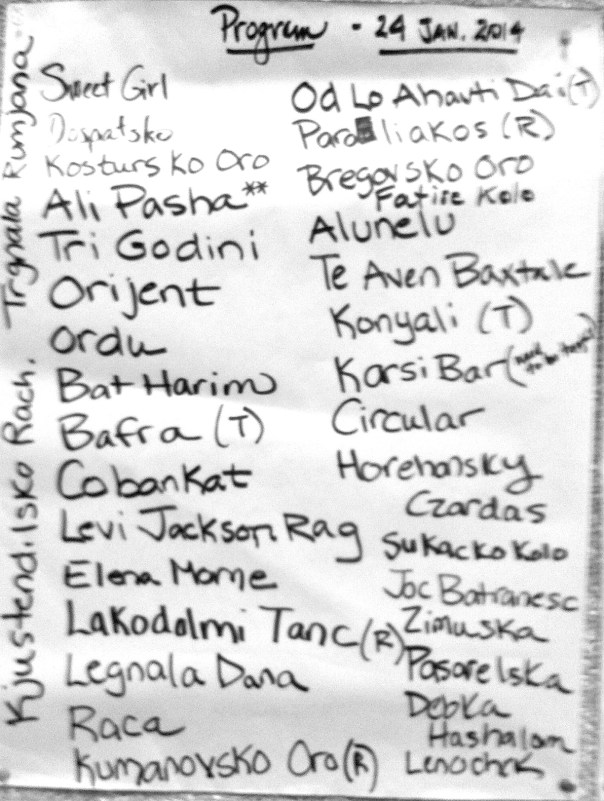 Program - 24 JAN. 2014
Sweet Girl
Dospatsko
Kosturs Ko Oro
Ali Pasha**
Tri Godini
Orijent
Ordu
Bat Harim
Bafra (T)
Cobankat
Levi Jackson Rag
Elena Mome
Lakodolmi Tanc (R)
Legnala Dana
Raca
Kumanovsko Oro (R)
Od Lo Ahavti Dai (T)
Paraliakos (R)
Bregovsko Oro
Fatise Kolo
Alunelu
Te Aven Baxtale
Konyali (T)
Karsi Bar (need to be taught)
Circular
Horehonsky
Czardas
Sukacko Kolo
Joc Batranesc
Zimuska
Pasarelska
Debka
Hashalom
Lenochk
Kjustendilsko Rach. Trgnala Rumjana